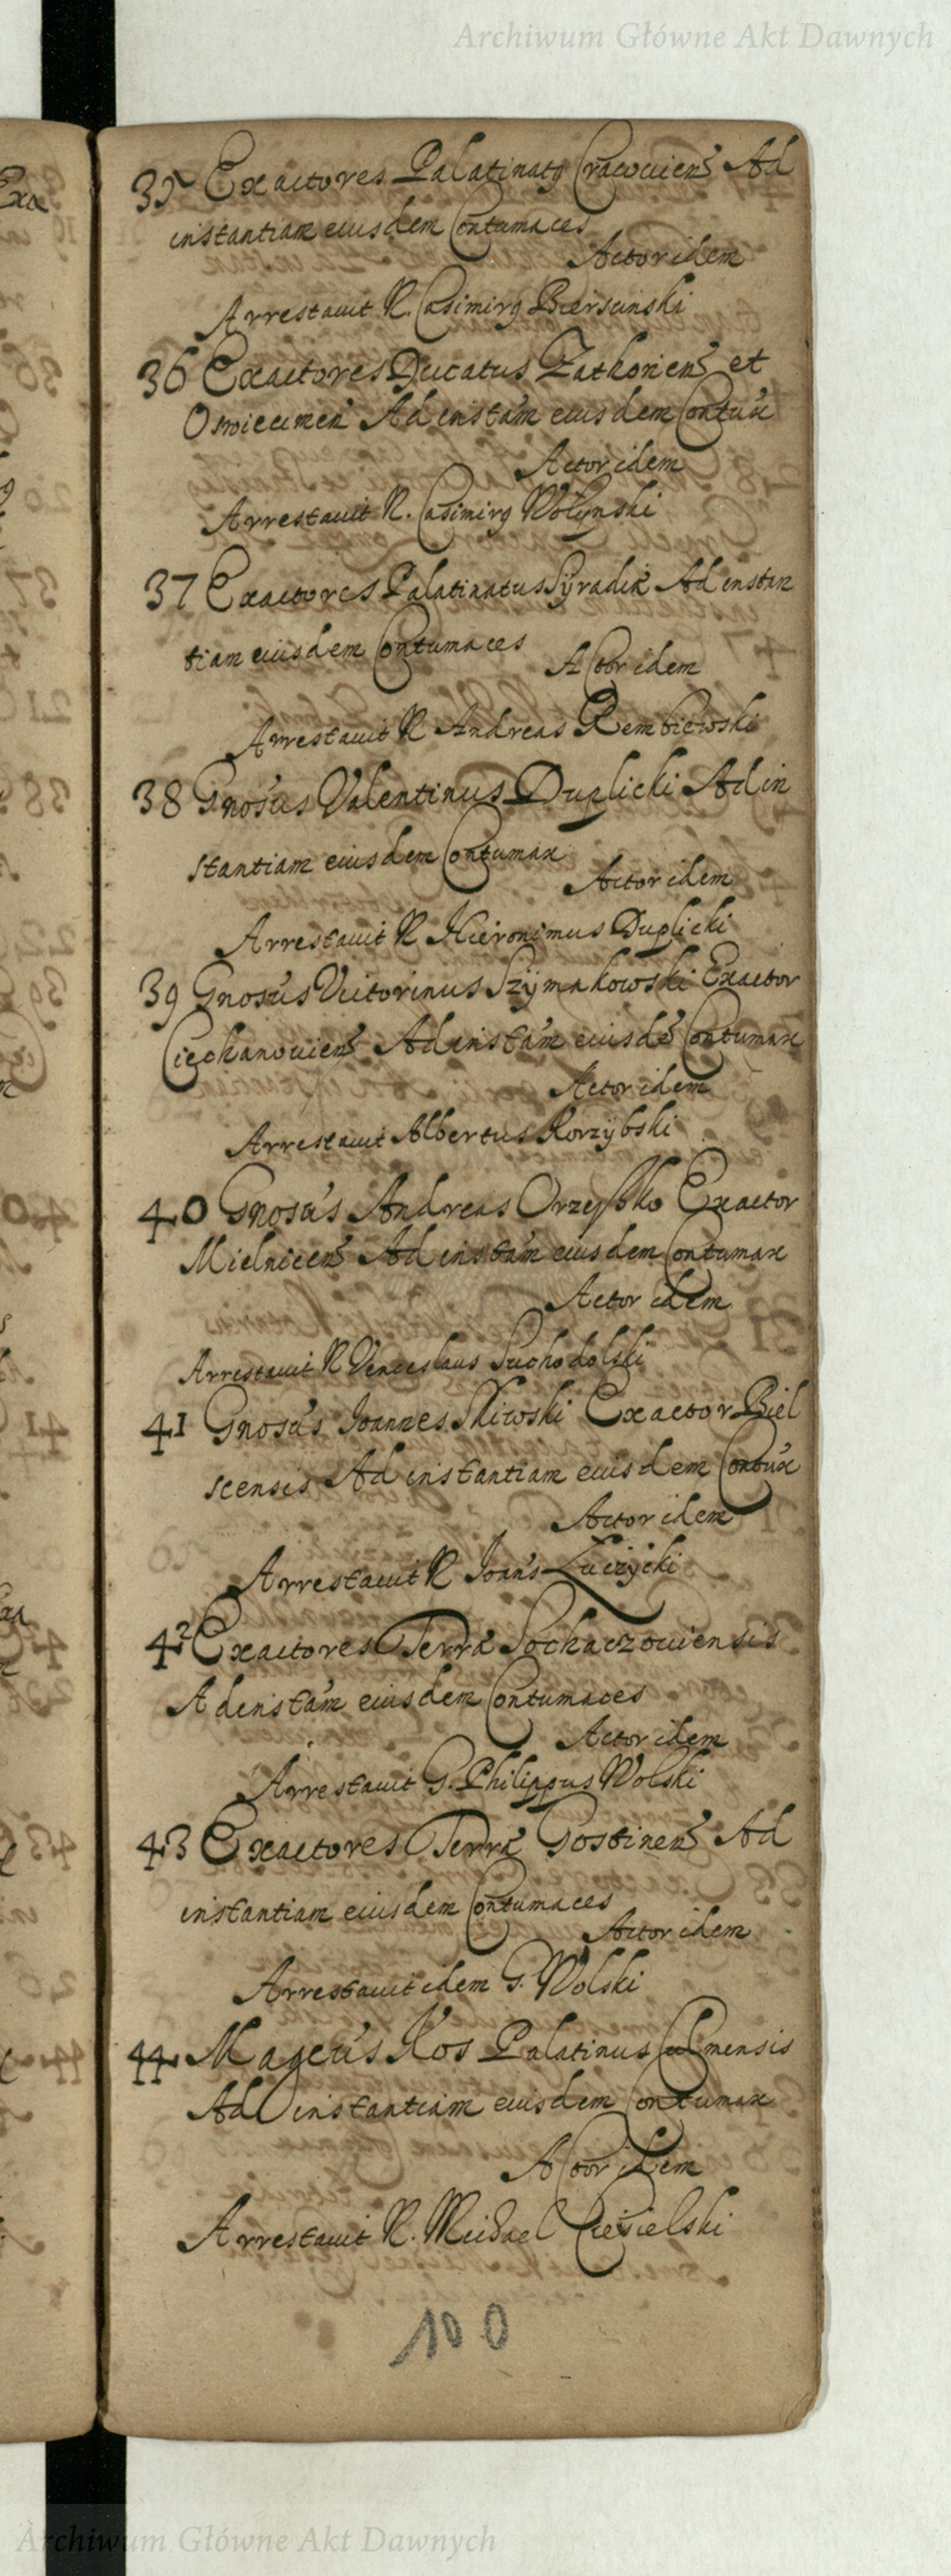 Archiwum Główne Akt Dawnych
35 Exactores Palatinatq Cracouiens Ad
instantiam eiusdem Contumaces
Actor idem
Arrestauit N. Casimirq Biersunski
36 Exactores Ducatus Zathoriens et
Oswiecimen Ad instam eiusdem Contux
Actor idem
Arrestauit N. Casimirq Wołynski
37 Exactores Palatinatus Syradien Ad instan
tiam eiusdem Contumaces
Actor idem
Arrestauit N Andreas Rembiewski
38 Gnosus Valentinus Duplicki Ad in
stantiam eiusdem Contumax
Actor idem
Arrestauit N Hieronimus Duplicki
39 Gnosus Victorinus Szymakowski Exactor
Ciechanouiens Ad instam eiusde Contumax
Actor idem
Arrestauit Albertus Korzybski
40 Gnosus Andreas Orzeszko Exactor
Mielnicens Ad instam eiusdem Contumax
Actor idem
Arrestauit N Venceslaus Suchodolski
41 Gnosus Joannes Skiwski Exactor Biel
scensis Ad instantiam eiusdem Contux
Actor idem
Arrestauit N Joans Zuczycki
42 Exactores Terra Sochaczouiensis
Ad instam eiusdem Contumaces
Actor idem
Arrestauit G. Philippus Wolski
43 Exactores Terra Gostinens Ad
instantiam eiusdem Contumaces
Actor idem
Arrestauit idem G. Wolski
44 Magcus Kos Palatinus Culmensis
Ad instantiam eiusdem Contumax
Actor idem
Arrestauit N. Michael Ciesielski
100
Archiwum Główne Akt Dawnych